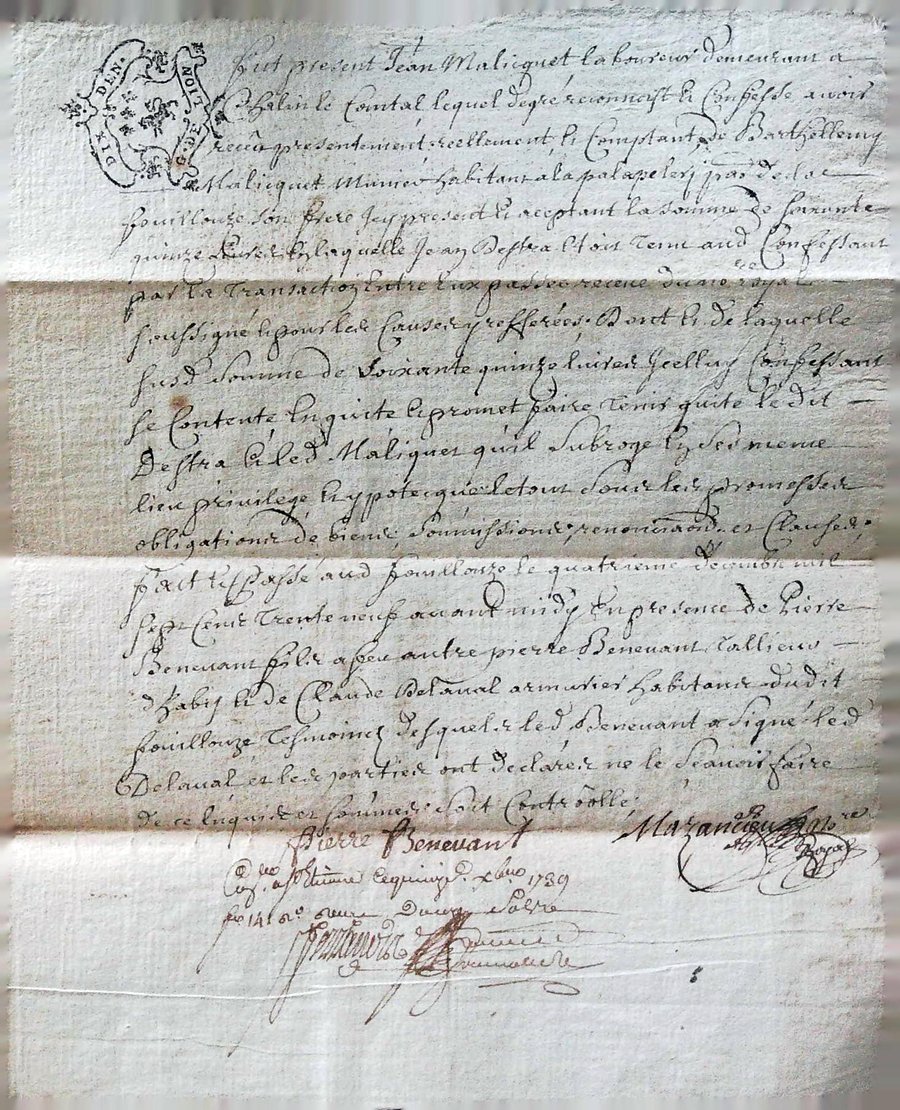 DIX DEN. G. DE LION
fut present Jean Malicquet laboureur demeurant a
Chalin le Comtal lequel degré reconnoist et Confesse avoir
recû presentement reellement et Comptant de Barthellemy
Malicquet Munier habitant a la palapelery parr de la
fouillouze son frere Icy present et aceptant la somme de soixante
quinze Livres en laquelle Jean Destra Etoit Tenu aud Confessant
par la Transaction Entre Eux passée receue du nore royal
soussigné et pour les Causes y refferées. Dont et de laquelle
susd somme de soixante quinze livres Icelluy Confessant
se Contente En quite et promet faire Tenir quite le dit
Destra et led. Maliquet qu'il subroge En ses meme
lieu privilege et ypotecque le tout sous les promesses
obligations de biens, soumissions, renonciaôns et Clauses;
fait et passé aud fouillouze le quatrieme decembre mil
sept Cens Trente neuf avant midy En presence de Pierre
Benevant fils a feu autre pierre Benevant Tallieur
d'habis et de Claude Delaval armurier habitans dudit
fouillouze Tesmoins desquels led Benevant a signé led
Delaval et les parties ont declarés ne le scavoir faire
de ce Enquis et sommés. soit Controôllé.
Pierre Benevant Mazancieu nore
Royal
a st Etienne le quinze xbre 1739
fo 141 no